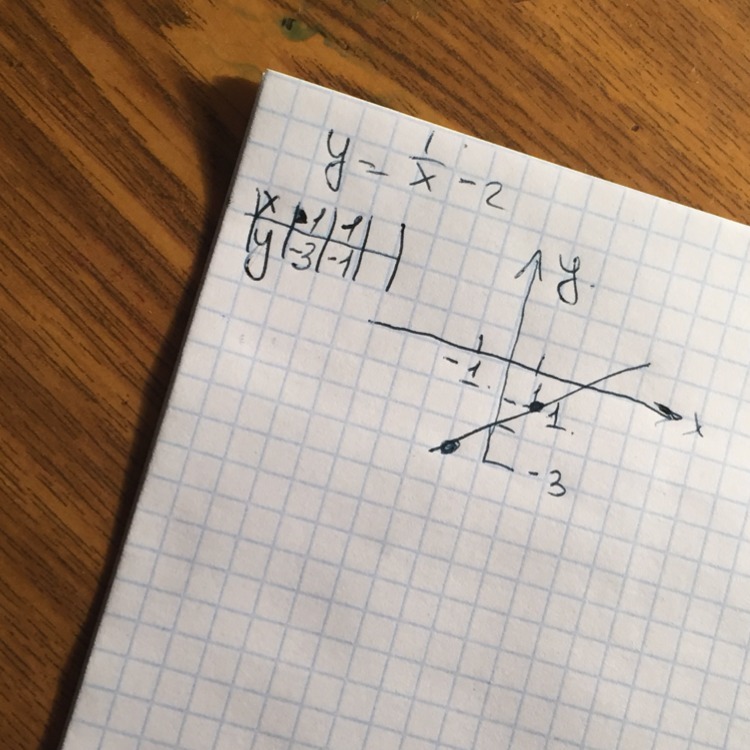 y = 1/x - 2
x | -1 | 1 |
y | -3 | -1 |
y
-1
-1
1
x
-3